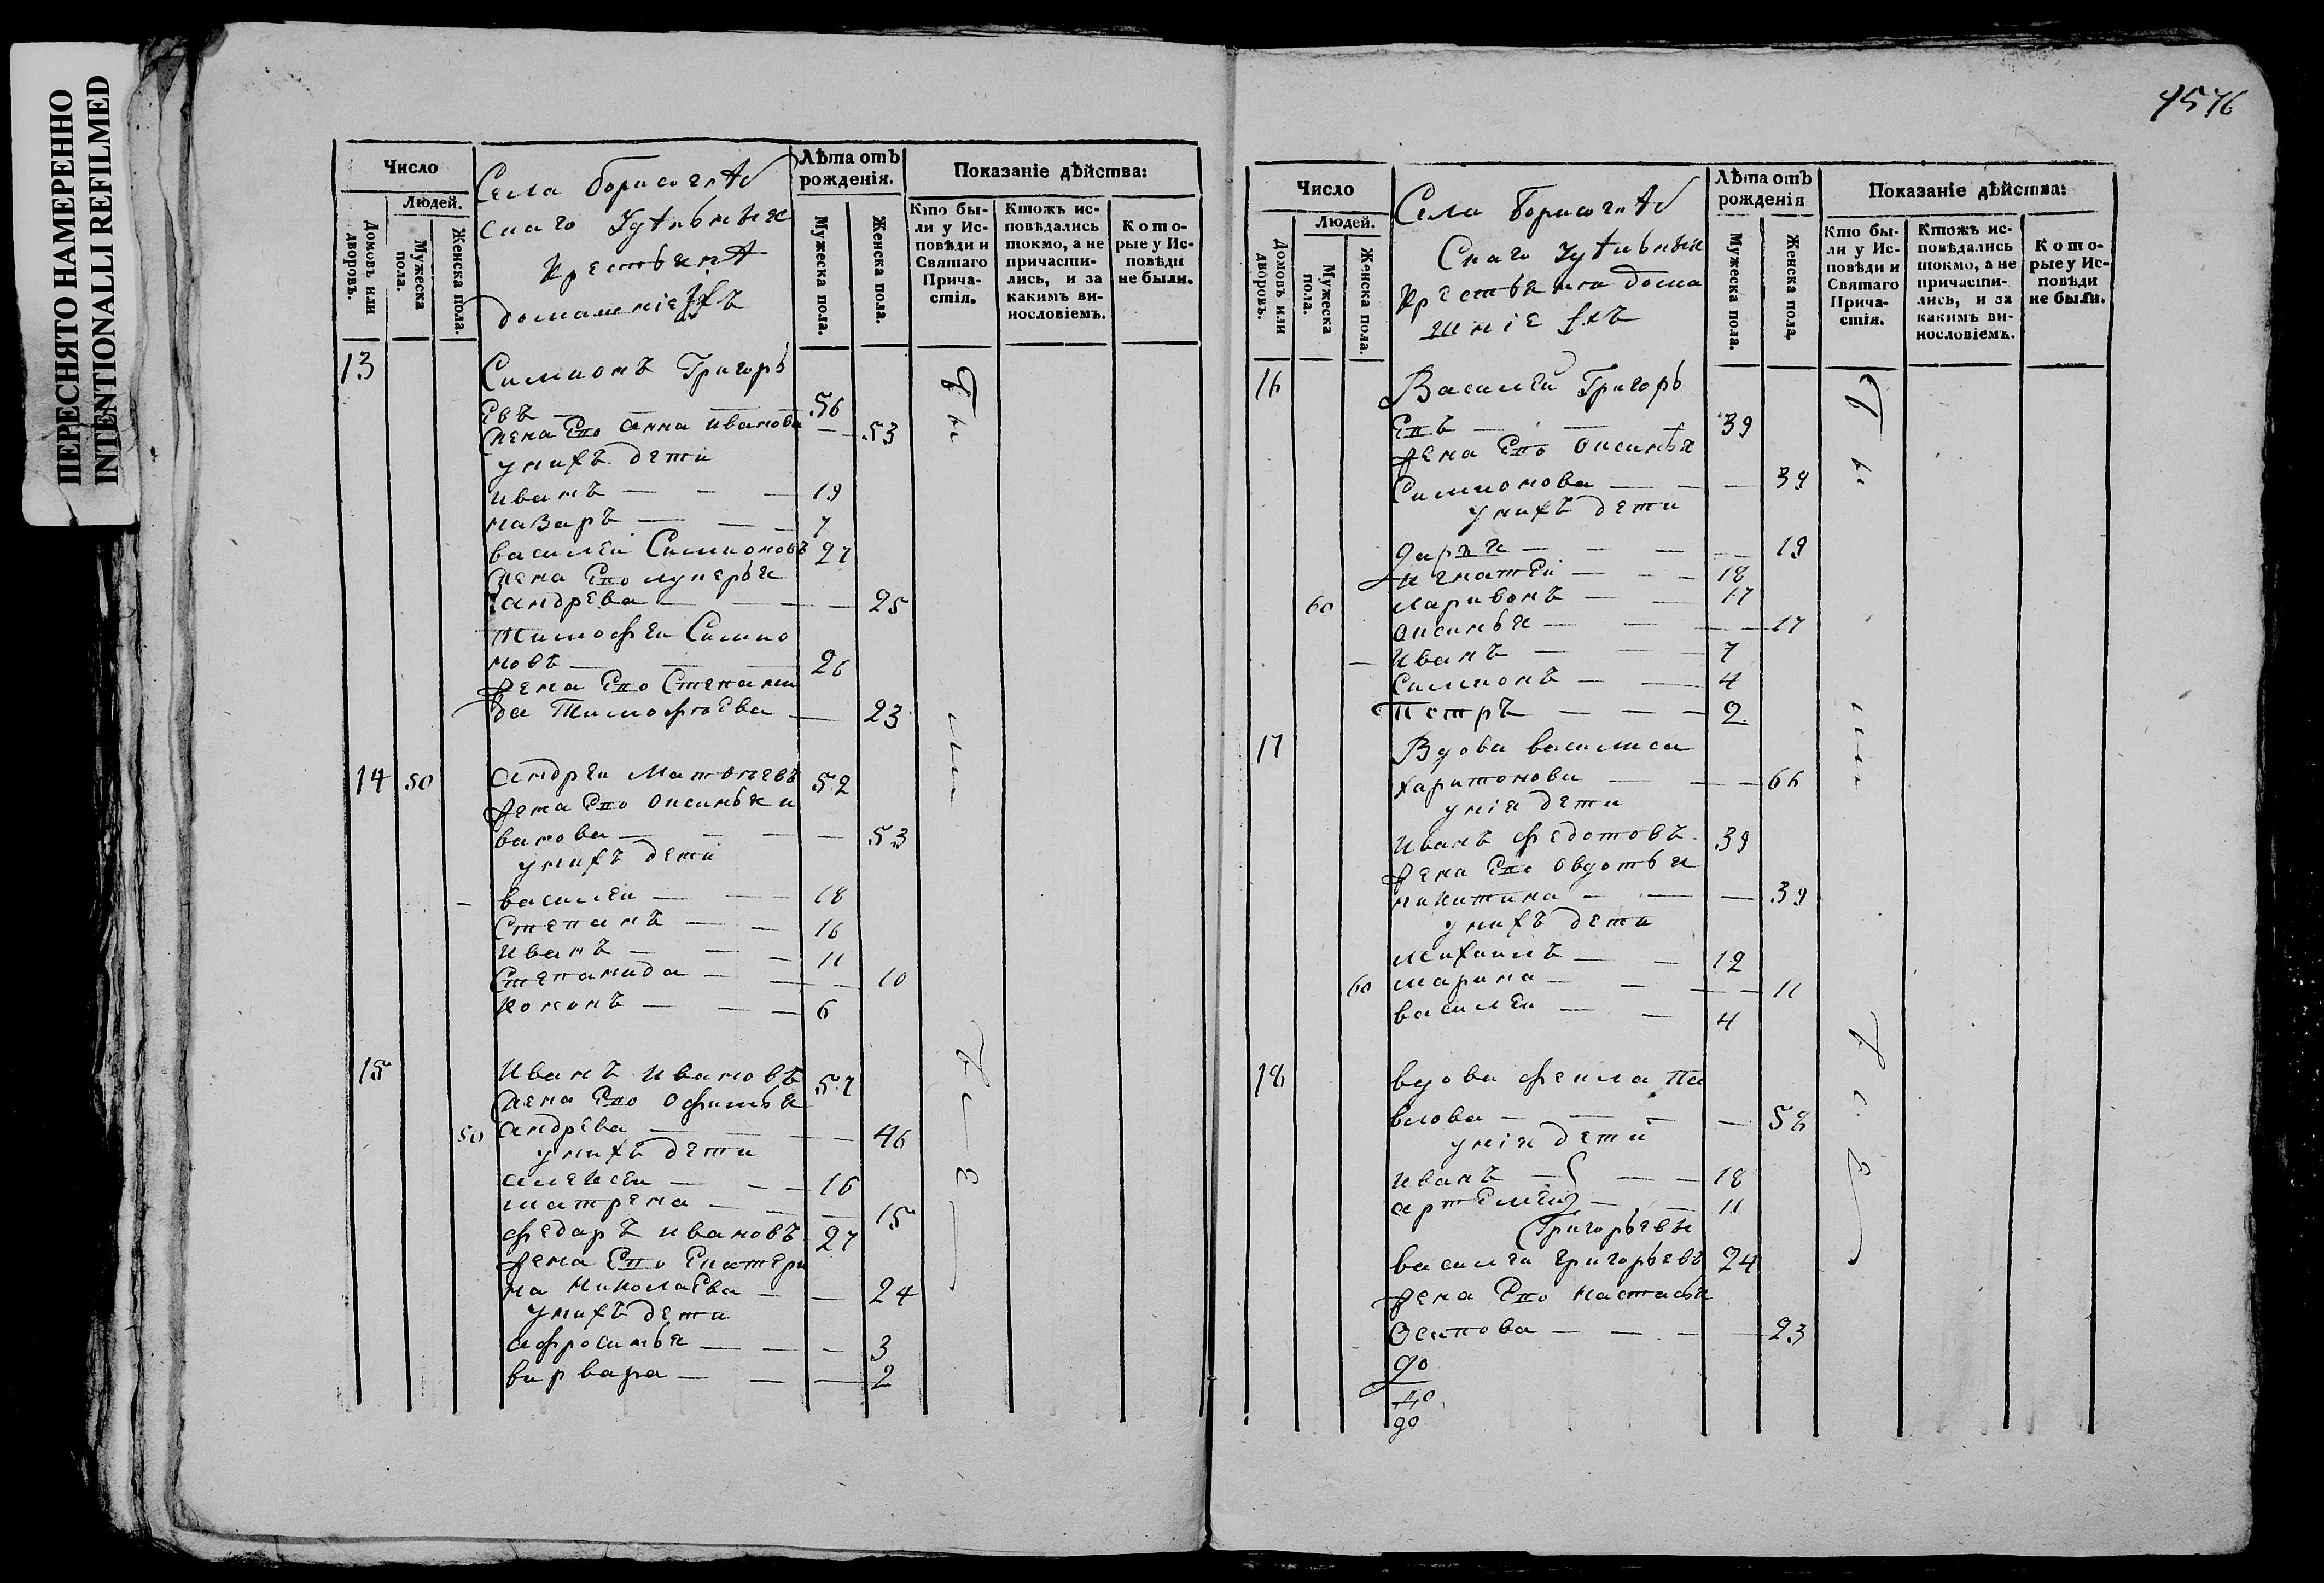 ПЕРЕСНЯТО НАМЕРЕННО
INTENTIONALLI REFILMED
Число
Людей.
Домовъ или дворовъ.
Мужеска пола.
Женска пола.
Села Борисоглѣб
скаго Удѣльныя
крестьянѣ
домашніе ихъ
Лѣта отъ
рожденія.
Мужеска пола.
Женска пола.
Показаніе дѣйства:
Кто бы-
ли у Ис-
повѣди и
Святаго
Прича-
стія.
Ктожъ ис-
повѣдались
токмо, а не
причасти-
лись, и за
какимъ ви-
нословіемъ.
Кото-
рые у Ис-
повѣди
не были.
13 Симионъ Григорь
евъ — 56
жена Его анна иванова — 53
унихъ дети
иванъ — 19
назаръ — 7
василеи Симионовъ 27
жена Его лукерья
андрева — 25
тимофеи Симио
новъ — 26
жена Его Степани
да Тимофеева — 23
14 50 андреи Матвеевъ 52
жена Его оксинья и
ванова — 53
унихъ дети
василеи — 18
Степанъ — 16
иванъ — 11
Степанида — 10
кононъ — 6
15 иванъ ивановъ 57
жена Его офимья
50 андрева — 46
унихъ дети
алексеи — 16
матрена — 15
федаръ ивановъ 27
жена Его Екатери
на николаева — 24
унихъ дети
афросинья — 3
варвара — 2
Число
Людей.
Домовъ или дворовъ.
Мужеска пола.
Женска пола.
Села Борисоглѣб
скаго Удѣльныя
крестьяна дома
шніе ихъ
Лѣта отъ
рожденія
Мужеска пола.
Женска пола.
Показаніе дѣйства:
Кто бы-
ли у Ис-
повѣди и
Святаго
Прича-
стія.
Ктожъ ис-
повѣдались
токмо, а не
причасти-
лись, и за
какимъ ви-
нословіемъ.
Кото-
рые у Ис-
повѣди
не были.
16 Василеи Григорь
евъ — 39
жена Его оксинья
Симионова — 39
унихъ дети
дарья — 19
игнатеи — 18
60 ларивонъ — 17
оксинья — 17
иванъ — 7
Симионъ — 4
Петръ — 2
17 Вдова василиса
харитонова — 66
унія дети
иванъ федотовъ 39
жена Его овдотья
никитина — 39
унихъ дети
михаилъ — 12
60 марина — 11
василеи — 4
18 вдова фекла па
влова — 58
унія дети
иванъ — 18
артемеи — 11
Григорьевы
василеи григорьевъ 24
жена Его настасья
Осипова — 23